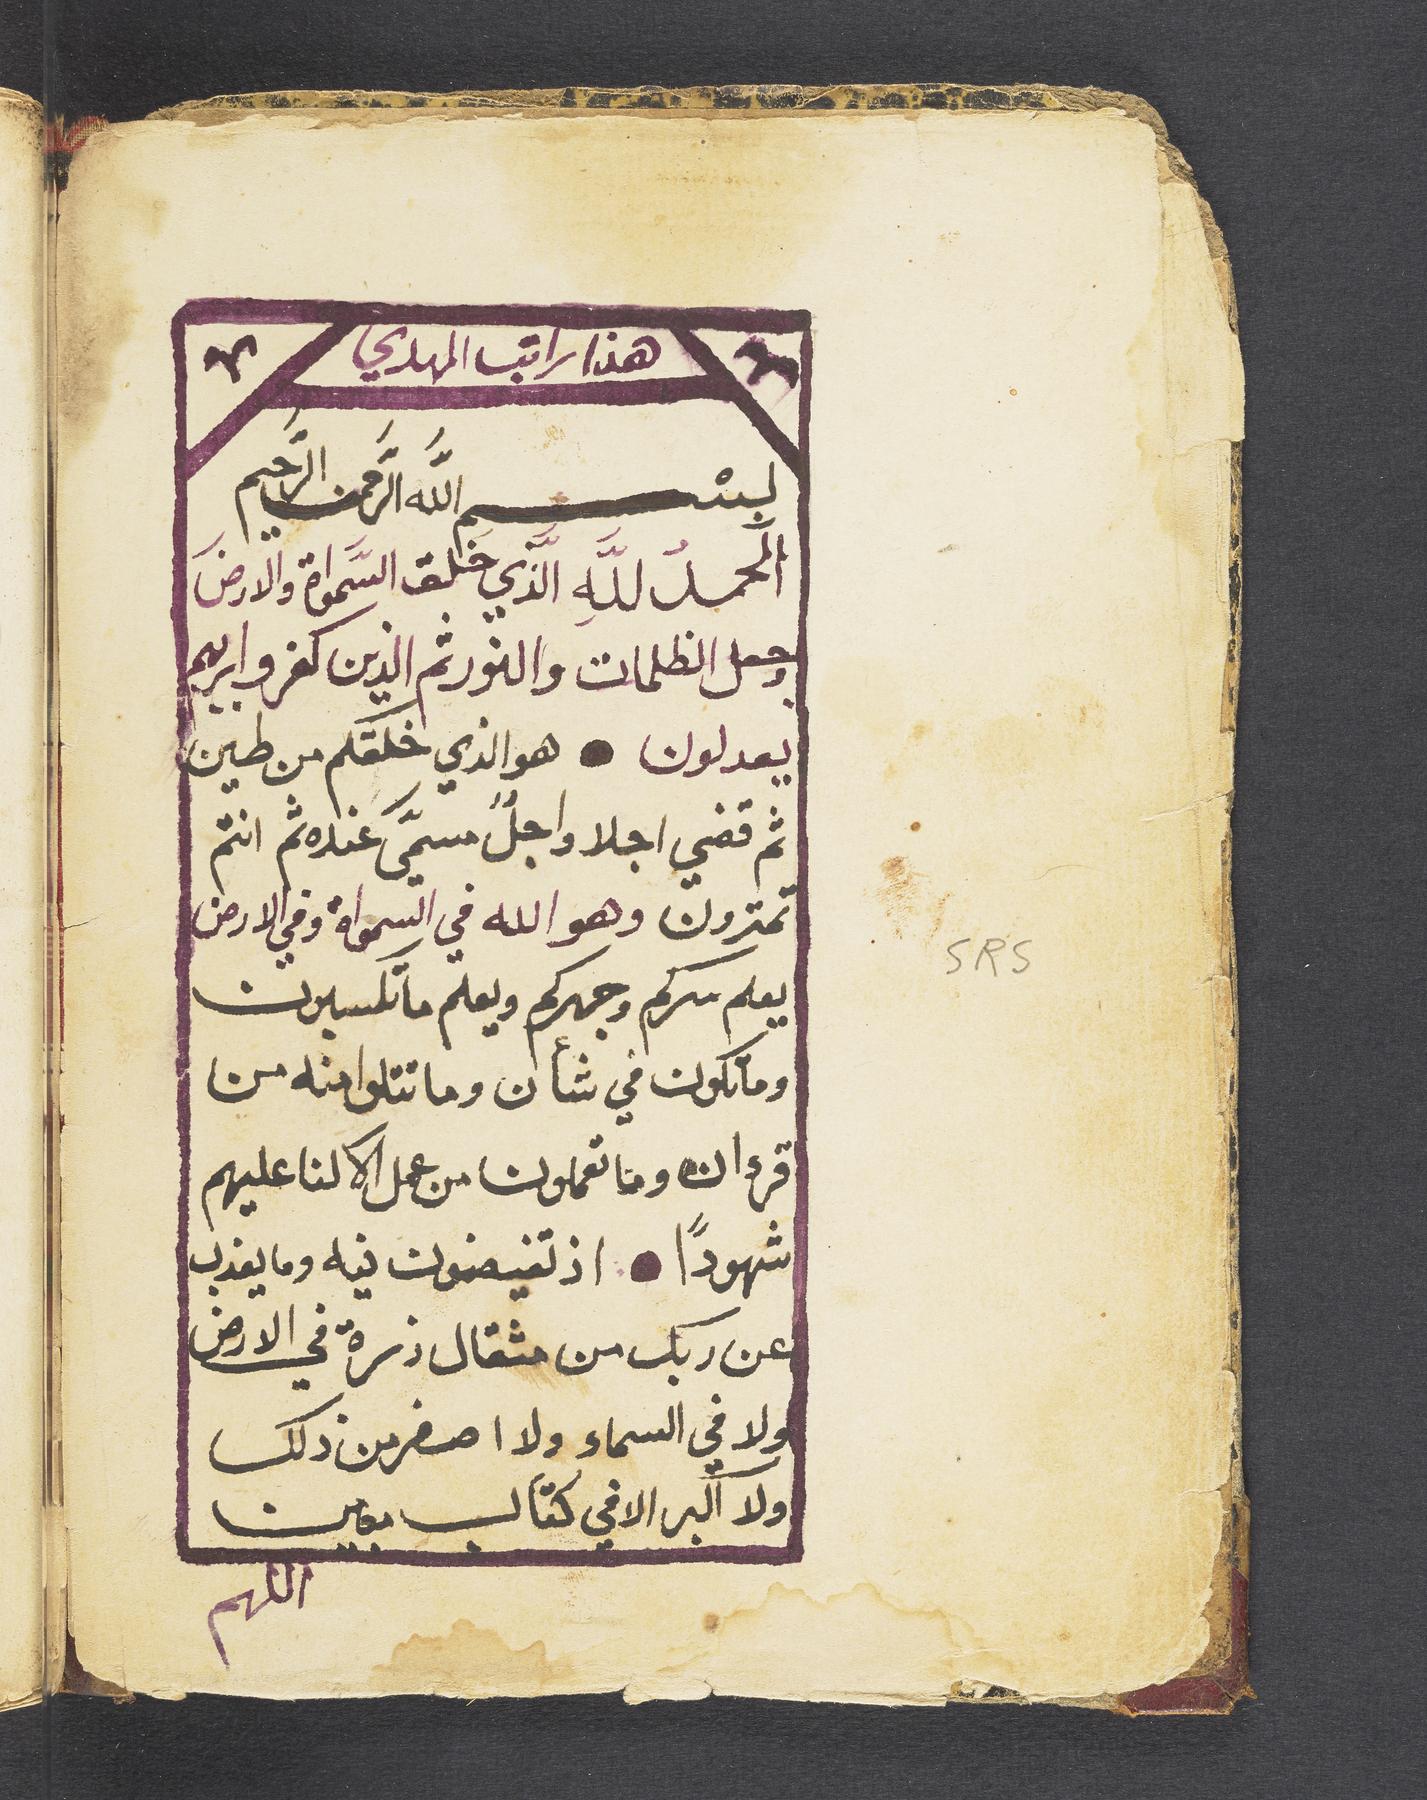 هذا راتب المهدي
بسم الله الرَّحمن الرَّحيم
الحمدُ للَّهِ الَّذي خَلق السَّمواة والارضَ
وجعل الظلمات والنور ثم الذين كفروا بربهم
يعدلون ● هو الذي خلقكم من طين
ثم قضي اجلا واجلٌ مسمَّى عنده ثم انتم
تمترون وهو الله في السمواة وفي الارض
يعلم سركم وجهركم ويعلم ما تكسبون
وما تكون في شأن وما تتلوا منه من
قرءان وما تعملون من عمل الا لنا عليهم
شهودًا ● اذ تفيضون فيه وما يعذب
عن ربك من مثقال ذرة في الارض
ولا في السماء ولا اصغر من ذلك
ولا اكبر الا في كتاب مبين
اللهم
SRS